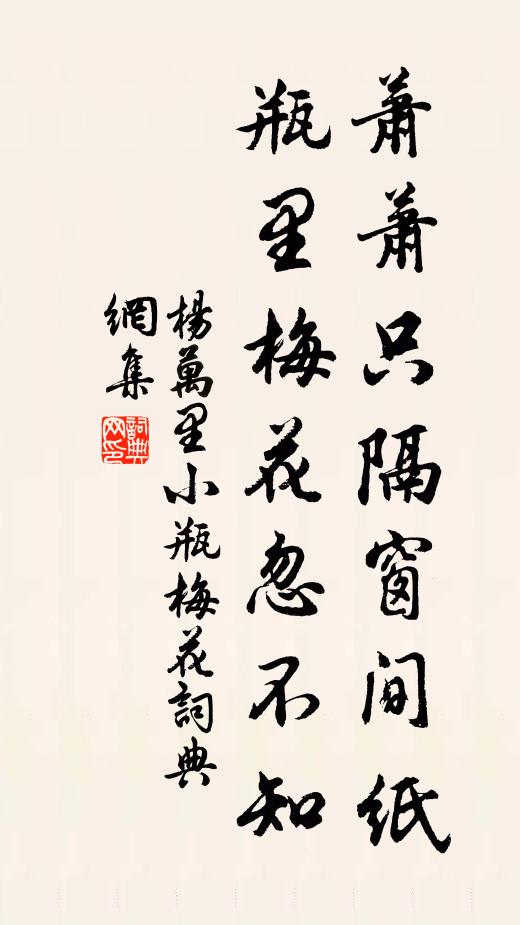 蕭蕭只隔窗間紙
瓶里梅花忽不知
楊萬里小瓶梅花詞典
網集
詞典
网印